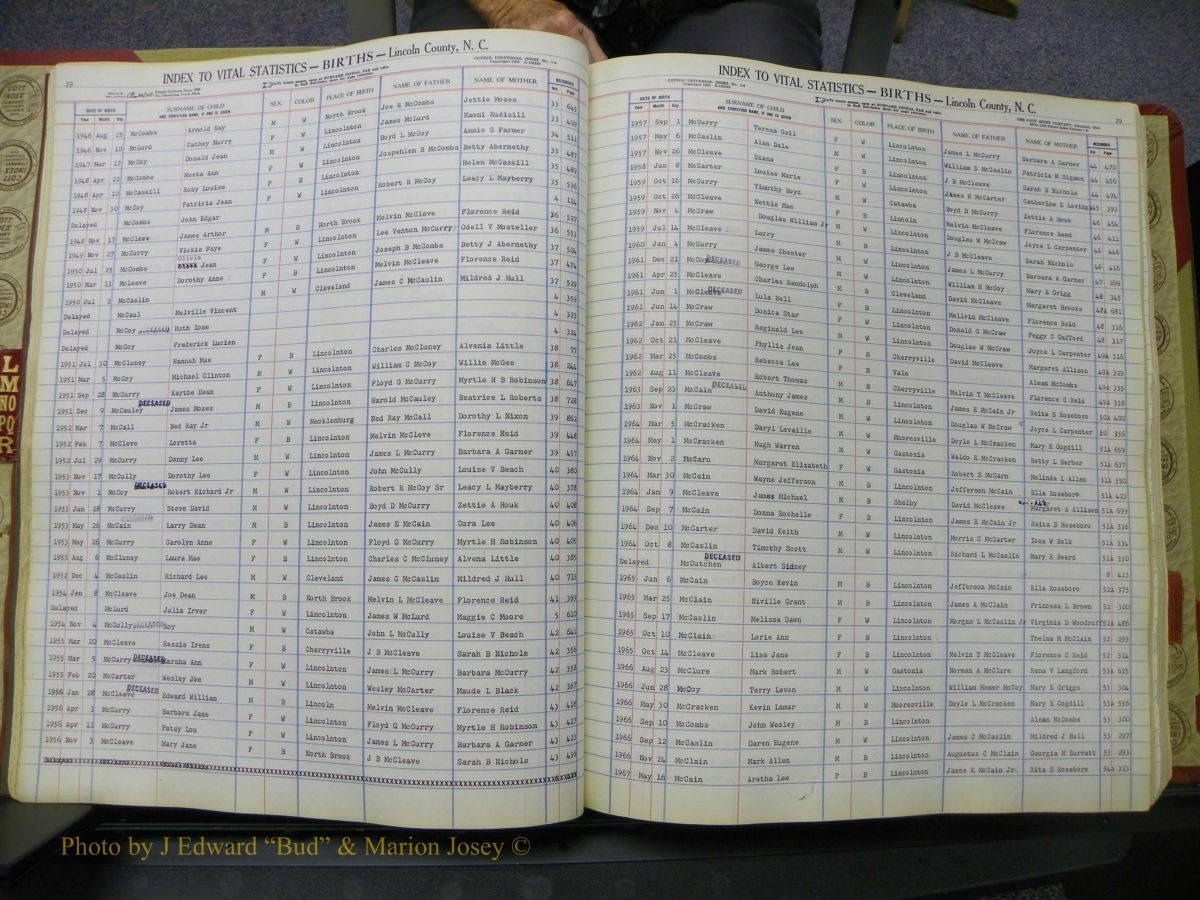 29
INDEX TO VITAL STATISTICS — BIRTHS — Lincoln County, N. C.
COTTCO UNIVERSAL INDEX, No. 1-4
DATE OF BIRTH SURNAME OF CHILD SEX COLOR PLACE OF BIRTH NAME OF FATHER NAME OF MOTHER RECORDED
Year Month Day AND CHRISTIAN NAME, IF ONE IS GIVEN Vol. Page
1946 Aug 25 McCombs Arnold Ray M W North Brook Joe R McCombs Jettie Moses 33 645
1946 Nov 10 McLurd Cathey Murry F W Lincolnton James McLurd Naomi Rudisill 33 409
1947 Mar 17 McCoy Donald Jean M W Lincolnton Boyd L McCoy Annie G Farmer 34 511
1948 Apr 22 McCombs Neeta Ann F W Lincolnton Josephlen B McCombs Betty Abernethy 35 487
1948 Apr 10 McCaskill Ruby Louise F B Lincolnton Helen McCaskill 35 489
1948 Nov 30 McCoy Patricia Jean F W Lincolnton Robert R McCoy Leacy L Mayberry 35 536
Delayed McCombs John Edgar 4 114
1948 Nov 17 McCleve James Arthor M B North Brook Melvin McCleve Florence Reid 36 527
1949 Nov 27 McCurry Vickie Faye F W Lincolnton Lee Venton McCurry Odell V Mosteller 36 553
1950 Jul 25 McCombs Olivia Jean F W Lincolnton Joseph B McCombs Betty J Abernethy 37 504
1950 Mar 13 McLeave Dorothy Anne F B Lincolnton Melvin McCleave Florence Reid 37 474
1950 Jul 2 McCaslin M W Cleveland James C McCaslin Mildred J Hull 37 529
Delayed McCaul Melville Vincent 4 359
Delayed McCoy DECEASED Ruth Ione 4 323
Delayed McCoy Frederick Lucien 4 324
1951 Jul 30 McCluney Hannah Mae F B Lincolnton Charles McCluney Alvenia Little 38 77
1951 Mar 5 McCoy Michael Clinton M W Lincolnton William C McCoy Willie McGee 38 244
1951 Sep 28 McCurry Kaythe Dean F W Lincolnton Floyd G McCurry Myrtle H B Robinson 38 647
1951 Dec 9 McCauley DECEASED James Moses M B Lincolnton Harold McCauley Beatrice L Roberts 38 728
1952 Mar 7 McCall Ned Ray Jr M W Mecklenburg Ned Ray McCall Dorothy L Nixon 39 862
1952 Feb 7 McCleve Loretta F B Lincolnton Melvin McCleve Florence Reid 39 448
1952 Jul 29 McCurry Danny Lee M W Lincolnton James L McCurry Barbara A Garner 39 457
1953 Nov 17 McCully Dorothy Lee F W Lincolnton John McCully Louise V Beach 40 380
1953 Nov 1 McCoy DECEASED Robert Richard Jr M W Lincolnton Robert R McCoy Sr Leacy L Mayberry 40 378
1953 Jan 28 McCurry Steve David M W Lincolnton Boyd D McCurry Zettie A Houk 40 408
1953 May 26 McCain DECEASED Larry Dean M B Lincolnton James E McCain Cora Lee 40 406
1953 May 26 McCurry Carolyn Anne F W Lincolnton Floyd G McCurry Myrtle H Robinson 40 405
1953 Aug 6 McCluney Laura Mae F B Lincolnton Charles C McCluney Alvena Little 40 385
1952 Dec 4 McCaslin Richard Lee M W Cleveland James C McCaslin Mildred J Hull 40 715
1954 Jan 8 McCleve Joe Dean M B North Brook Melvin L McCleave Florence Reid 41 369
Delayed McLurd Julia Irver F W Lincolnton James W McLurd Maggie C Moore 5 610
1954 Nov 4 McCully DECEASED Roy M W Catawba John L McCully Louise V Beach 42 641
1955 Mar 20 McCleave Ressie Irene F B Cherryville J B McCleave Sarah B Nichols 42 356
1955 Mar 5 McCurry DECEASED Marsha Ann F W Lincolnton James L McCurry Barbara McCurry 42 358
1955 Feb 20 McCarter Wesley Joe M W Lincolnton Wesley McCarter Maude L Black 42 367
1956 Jan 28 McCleave DECEASED Edward William M B Lincoln Melvin McCleave Florence Reid 43 418
1956 Apr 3 McCurry Barbara Jane F W Lincolnton Floyd G McCurry Myrtle H Robinson 43 417
1956 Apr 11 McCurry Patsy Lou F W Lincolnton James L McCurry Barbara A Garner 43 423
1956 Nov 3 McCleave Mary Jane F B North Brook J B McCleave Sarah B Nichols 43 436
INDEX TO VITAL STATISTICS — BIRTHS — Lincoln County, N. C.
29
DATE OF BIRTH SURNAME OF CHILD SEX COLOR PLACE OF BIRTH NAME OF FATHER NAME OF MOTHER RECORDED
Year Month Day AND CHRISTIAN NAME, IF ONE IS GIVEN Vol. Page
1957 Sep 1 McCurry Teresa Gail F W Lincolnton James L McCurry Barbara A Garner 44 470
1957 May 6 McCaslin Alan Dale M W Lincolnton William D McCaslin Patricia M Sigmon 44 456
1957 Nov 26 McCleave Diana F B Lincolnton J B McCleave Sarah B Nichols 44 474
1958 Jun 8 McCarter Louise Marie F W Catawba James H McCarter Catherine E Loving 45 393
1959 Oct 16 McCurry Timothy Boyd M W Lincolnton Boyd D McCurry Zettie A Houk 46 454
1959 Oct 26 McCleave Nettie Mae F B Lincoln Melvin McCleave Florence Reed 46 411
1959 Nov 4 McCraw Douglas William Jr M W Lincolnton Douglas W McCraw Joyce L Carpenter 46 446
1959 Jul 14 McCleave Larry M B Lincolnton J B McCleave Sarah Nichols 46 416
1960 Jan 4 McCurry James Chester M W Lincolnton James L McCurry Barbara A Garner 47 299
1961 Dec 21 McCoy DECEASED George Lee M W Lincolnton William H McCoy Mary E Grigg 48 345
1961 Apr 25 McCleave Charles Randolph M B Cleveland David McCleave Margaret Brooks 48A 681
1961 Jun 1 McCleave DECEASED Lula Bell F B Lincolnton Mellvin McCleave Florence Reid 48 316
1961 Jun 14 McCraw Donica Star F W Lincolnton Donald G McCraw Peggy C Gafford 48 317
1962 Jan 25 McCraw Reginald Lee M W Lincolnton Douglas W McCraw Joyce L Carpenter 49A 316
1962 Oct 21 McCleave Phyllis Jean F B Cherryville David McCleave Margaret Allison 49A 329
1962 Mar 25 McCombs Rebecca Lee F B Vale Alean McCombs 49A 335
1962 Aug 11 McCleave Robert Thomas M B Cherryville Melvin T McCleave Florence C Reid 49A 338
1963 Sep 23 McCain DECEASED Anthony James M B Lincolnton James E McCain Jr Reita S Roseboro 50A 400
1963 Nov 1 McCraw David Eugene M W Lincolnton Douglas W McCraw Joyce L Carpenter 50 356
1964 Mar 5 McCracken Daryl Levaille M W Mooresville Doyle L McCracken Mary E Cogdill 51A 659
1964 May 1 McCracken Hugh Warren M W Gastonia Waldo E McCracken Betty L Barber 51A 637
1964 Nov 2 McCarn Margaret Elizabeth F W Gastonia Robert S McCarn Melinda L Allen 51A 590
1964 Mar 30 McCain Wayne Jefferson M B Lincolnton Jefferson McCain Ella Roseboro 51A 423
1964 Jan 9 McCleave James Michael M B Shelby David McCleave Margaret A Allison 51A 699
1964 Sep 7 McCain Donna Rochelle F B Lincolnton James E McCain Jr Reita S Roseboro 51A 336
1964 Dec 10 McCarter David Keith M W Lincolnton Morris C McCarter Iona W Belk 51A 334
1964 Oct 8 McCaslin Timothy Scott M W Lincolnton Richard L McCaslin Mary R Beard 51A 330
Delayed McCutchen DECEASED Albert Sidney 8 413
1965 Jun 6 McCain Boyce Kevin M B Lincolnton Jefferson McCain Ella Roseboro 52A 375
1965 Mar 25 McClain Niville Grant M B Lincolnton James A McClain Princess L Brown 52 300
1965 Sep 17 McCaslin Melissa Dawn F W Lincolnton Morgan L McCaslin Jr Virginia D Woodruff 52A 486
1965 Oct 10 McClain Lorie Ann F B Lincolnton Thelma M McClain 52 293
1965 Oct 14 McCleave Lisa Jane F B Lincolnton Melvin T McCleave Florence C Reid 52 314
1966 Aug 23 McClure Mark Robert M W Gastonia Norman A McClure Rena V Langford 53A 625
1966 Jun 28 McCoy Terry Levon M W Lincolnton William Homer McCoy Mary E Griggs 53 304
1966 May 30 McCracken Kevin Lamar M W Mooresville Doyle L McCracken Mary E Cogdill 53A 556
1966 Sep 10 McCombs John Wesley M B Lincolnton Alean McCombs 53 300
1966 Sep 12 McCaslin Daren Eugene M W Lincolnton James C McCaslin Mildred J Hull 53 297
1966 Nov 24 McClain Mark Allen M B Lincolnton Augustus C McClain Georgia M Surratt 53 293
1967 May 16 McCain Aretha Lee F B Lincolnton James E McCain Jr Rita S Roseboro 54A 323
L
M
NO
PQ
R
Photo by J Edward “Bud” & Marion Josey ©